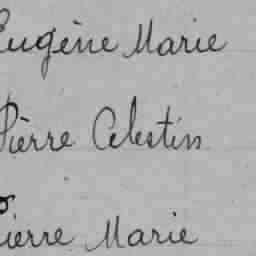 Eugène Marie
Pièrre Célestin
Pierre Marie